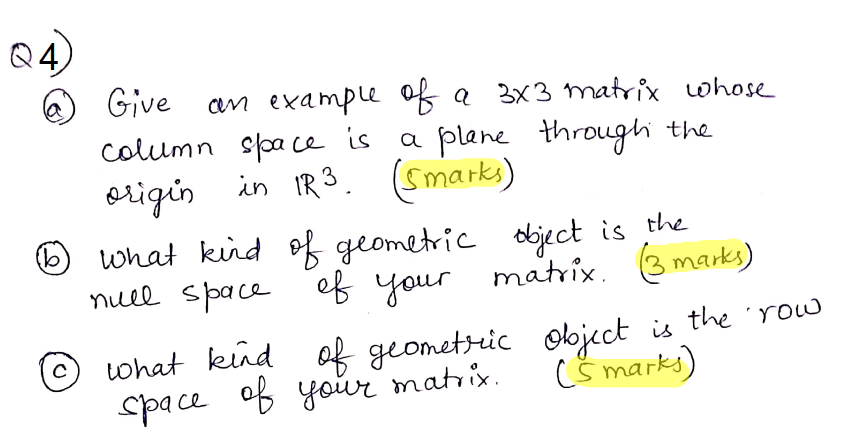 Q4)
(a) Give an example of a 3x3 matrix whose
column space is a plane through the
origin in IR3. (5marks)
(b) what kind of geometric object is the
null space of your matrix. (3 marks)
(c) what kind of geometric object is the row
space of your matrix. (5 marks)